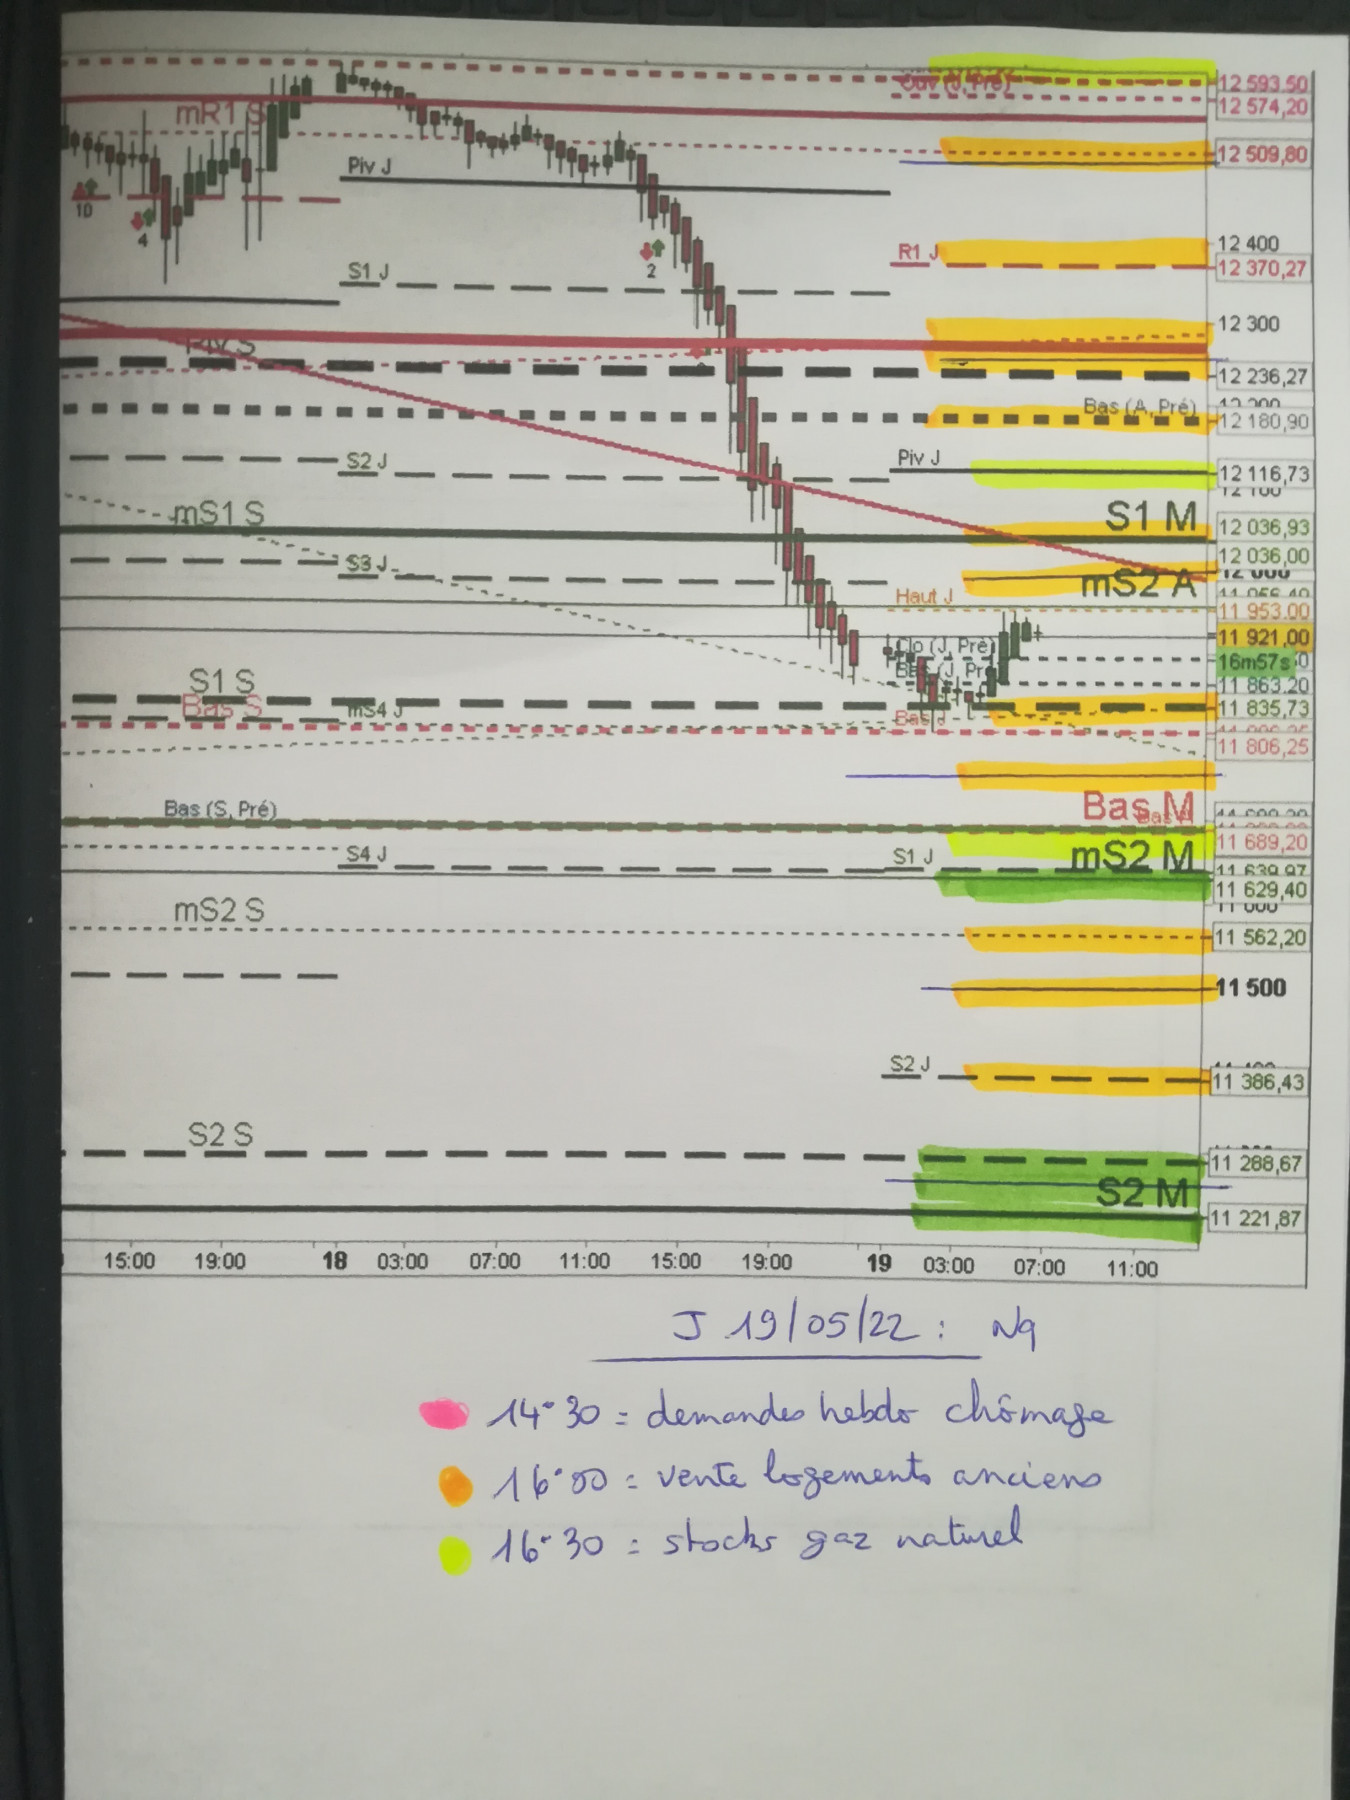 Ouv (J, Pré)
12 593.50
12 574,20
mR1 S
12 509,80
Piv J
10
4
12 400
R1 J
12 370,27
2
S1 J
12 300
Piv S
12 236,27
Bas (A, Pré)
12 180,90
S2 J
Piv J
12 116,73
12 100
mS1 S
S1 M
12 036,93
12 036,00
S3 J
12 000
mS2 A
Haut J
11 953.00
11 921,00
Clo (J, Pré)
16m57s
S1 S
11 863.20
Bas S
mS4 J
Bas J
11 835,73
11 806,25
Bas (S, Pré)
Bas M
11 689,20
S4 J
S1 J
mS2 M
11 639,97
11 629,40
mS2 S
11 562,20
11 500
S2 J
11 386,43
S2 S
11 288,67
S2 M
11 221,87
15:00 19:00 18 03:00 07:00 11:00 15:00 19:00 19 03:00 07:00 11:00
J 19/05/22 : Nq
14°30 = demandes hebdo chômage
16°00 = vente logements anciens
16°30 = stocks gaz naturel